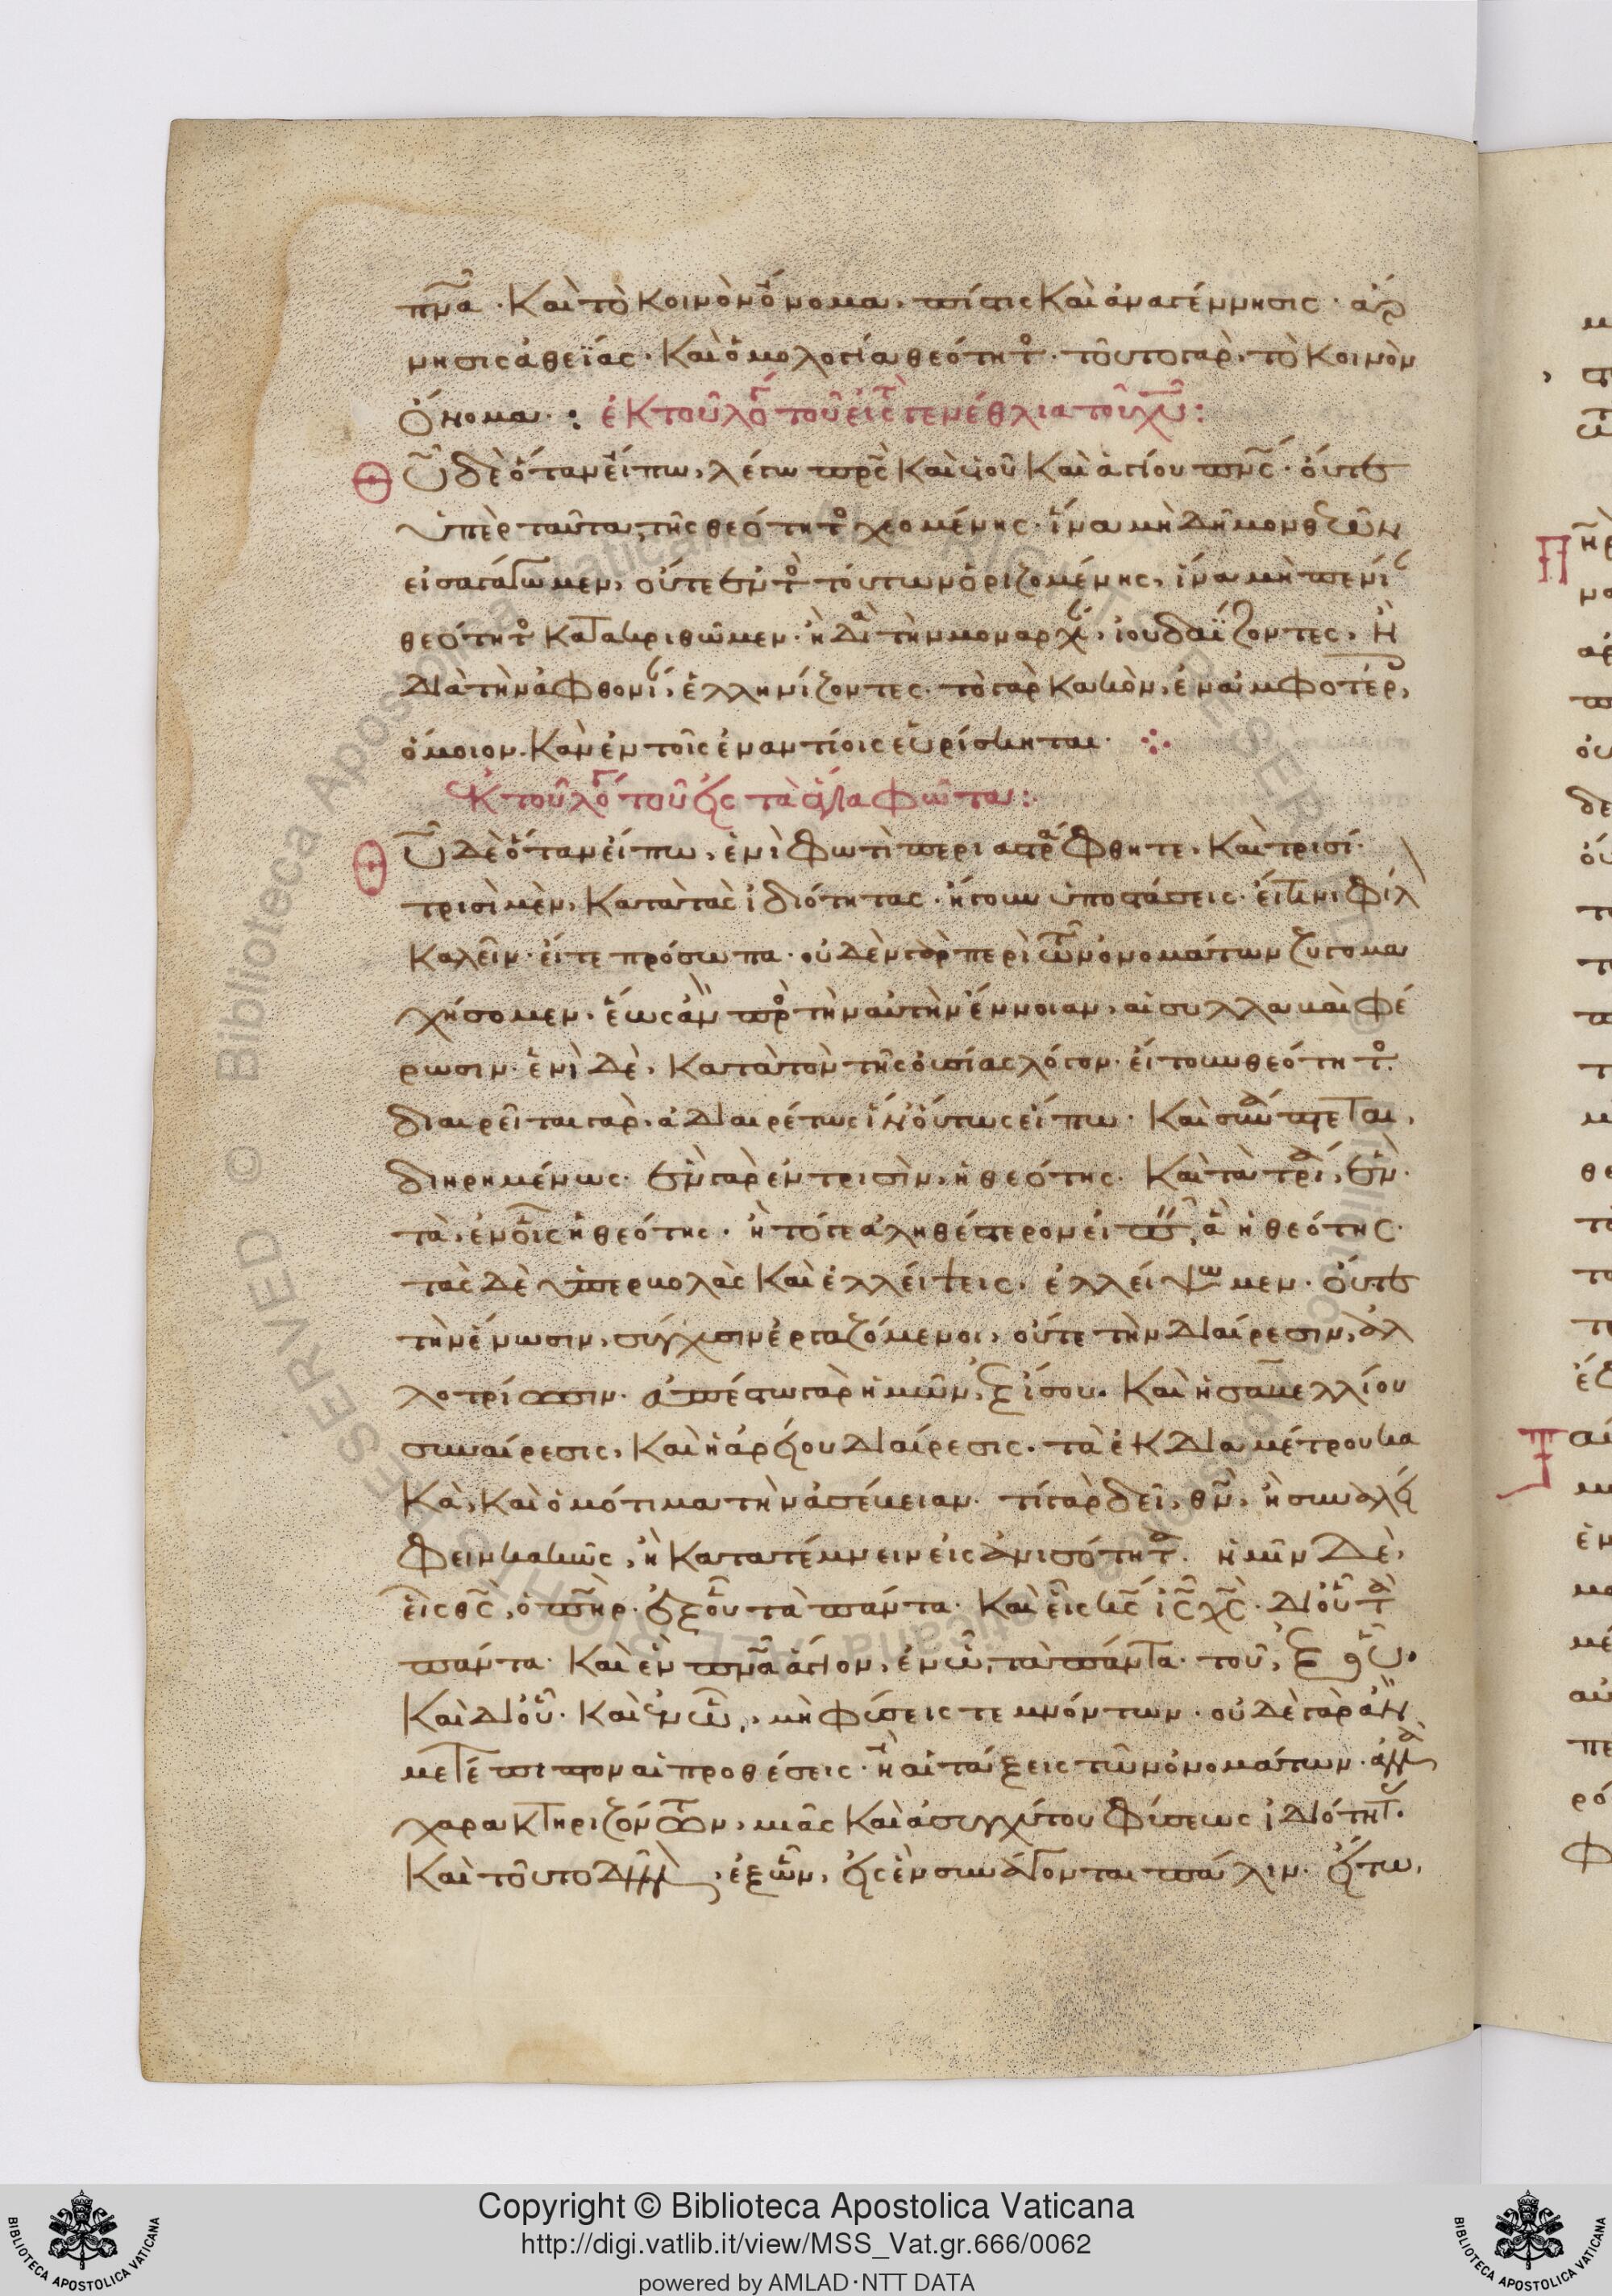 πν̅α̅. καὶ τὸ κοινὸν ὄνομα, πίστις καὶ ἀναγέννησις. ἄρ
νησις ἀθεΐας. καὶ ὁμολογία θεότητος. τοῦτο γὰρ, τὸ κοινὸν
ὄνομα. : ἐκ τοῦ λόγ τοῦ εἰς τ γενέθλια τοῦ χυ̅:
Θῦ δὲ ὅταν εἴπω, λέγω πρς̅ καὶ υἱοῦ καὶ ἁγίου πνς̅. οὔτε
ὑπὲρ ταῦτα, τῆς θεότητος χεομένης. ἵνα μὴ δῆμον θεῶν
εἰσαγάγωμεν, οὔτε ἐντὸς τούτων ὁριζομένης, ἵνα μὴ πενίαν
θεότητος κατακριθῶμεν. ἢ διὰ τὴν μοναρχίαν, ἰουδαΐζοντες, ἢ
διὰ τὴν ἀφθονίαν, ἑλληνίζοντες. τὸ γὰρ κακὸν, ἐν ἀμφοτέρ,
ὅμοιον. κἂν ἐν τοῖς ἐναντίοις εὑρίσκηται.
Ἐκ τοῦ λόγ τοῦ εἰς τὰ ἅγια φῶτα:
Θῦ δὲ ὅταν εἴπω, ἑνὶ φωτὶ περιαστράφθητε, καὶ τρισί.
τρισὶ μὲν, κατὰ τὰς ἰδιότητας. ἤγουν ὑποστάσεις. εἴ τινι φίλ
καλεῖν. εἴτε πρόσωπα. οὐδὲν γὰρ περὶ τῶν ὀνομάτων ζυγομα
χήσομεν. ἕως ἂν πρὸς τὴν αὐτὴν ἔννοιαν, αἱ συλλαβαὶ φέ
ρωσιν. ἑνὶ δὲ, κατὰ τὸν τῆς οὐσίας λόγον. εἴτουν θεότητος.
διαιρεῖται γὰρ, ἀδιαιρέτως ἵν' οὕτως εἴπω. καὶ συνάπτεται,
διῃρημένως. ἓν γὰρ ἐν τρισὶν, ἡ θεότης. καὶ τὰ τρία, ἕν.
τὰ, ἐν οἷς ἡ θεότης. ἢ τό γε ἀληθέστερον εἰπεῖν, ἃ ἡ θεότης.
τὰς δὲ ὑπερβολὰς καὶ ἐλλείψεις, ἐλλείψωμεν. οὔτε
τὴν ἕνωσιν, σύγχυσιν ἐργαζόμενοι, οὔτε τὴν διαίρεσιν, ἀλ
λοτρίωσιν. ἀπέστω γὰρ ἡμῶν, ἐξίσου. καὶ ἡ σαβελλίου
συναίρεσις, καὶ ἡ ἀρείου διαίρεσις. τὰ ἐκ διαμέτρου κα
κὰ, καὶ ὁμότιμα τὴν ἀσέβειαν. τί γὰρ δεῖ, θν̅, ἢ συναλεί
φειν κακῶς, ἢ κατατέμνειν εἰς ἀνισότητα. ἡμῖν δὲ,
εἷς θς̅, ὁ πηρ̅. ἐξ οὗ τὰ πάντα. καὶ εἷς κς̅ ις̅ χς̅. δι' οὗ τὰ
πάντα. καὶ ἓν πνα̅ ἅγιον, ἐν ᾧ, τὰ πάντα. τοῦ, ἐξ οὗ.
καὶ δι' οὗ. καὶ ἐν ᾧ, μὴ φύσεις τεμνόντων. οὐδὲ γὰρ ἂν
μετέπιπτον αἱ προθέσεις. ἢ αἱ τάξεις τῶν ὀνομάτων. ἀλλὰ
χαρακτηριζόντων, μιᾶς καὶ ἀσυγχύτου φύσεως ἰδιότητας.
καὶ τοῦτο δῆλον, ἐξ ὧν, εἰς ἓν συνάγονται πάλιν. εἴ τω,